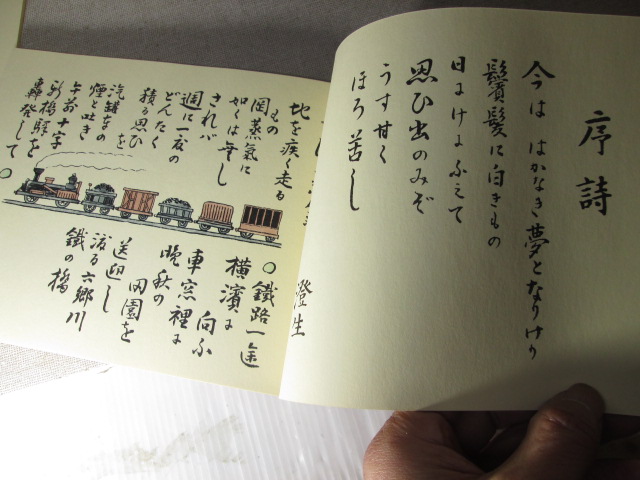 序詩
今は はかなき夢となりけり
鬢髪に白きもの
日にけにふえて
思ひ出のみぞ
うす甘く
ほろ苦し
澄生
地を疾く走る
もの
岡蒸氣に
如くは無し
されバ
週に一夜の
どんたく
積る思ひ
を
汽罐車の
煙と吐き
午前十字
新橋驛を
轟発して
○
○鐵路一途
横濱に
向ふ
車窓裡に
晩秋の
田園を
送迎し
渡る六郷川
鐵の橋